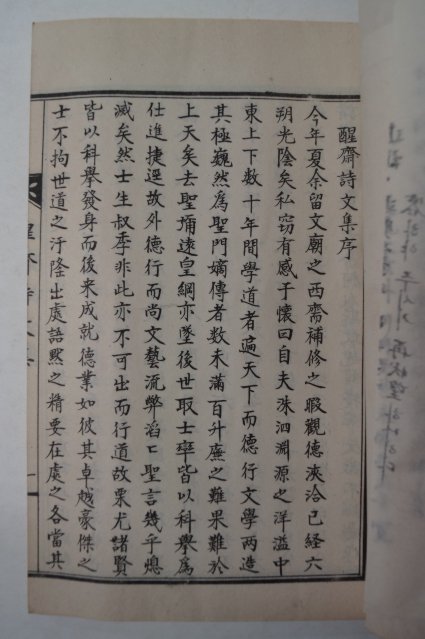 醒齋詩文集序
今年夏余留文廟之西齋補修之暇觀德浹洽已経六
朔光陰矣私窃有感于懷曰自夫洙泗淵源之洋溢中
東上下数十年間學道者遍天下而德行文學両造
其極巍然爲聖門嫡傳者数未滿百升廡之難果難於
上天矣去聖彌遠皇綱亦墜後世取士率皆以科擧爲
仕進捷逕故外德行而尚文藝流弊滔匸聖言幾乎熄
滅矣然士生叔季非此亦不可出而行道故栗尤諸賢
皆以科擧發身而後来成就德業如彼其卓越豪傑之
士不拘世道之汙隆出處語黙之精要在處之各當其